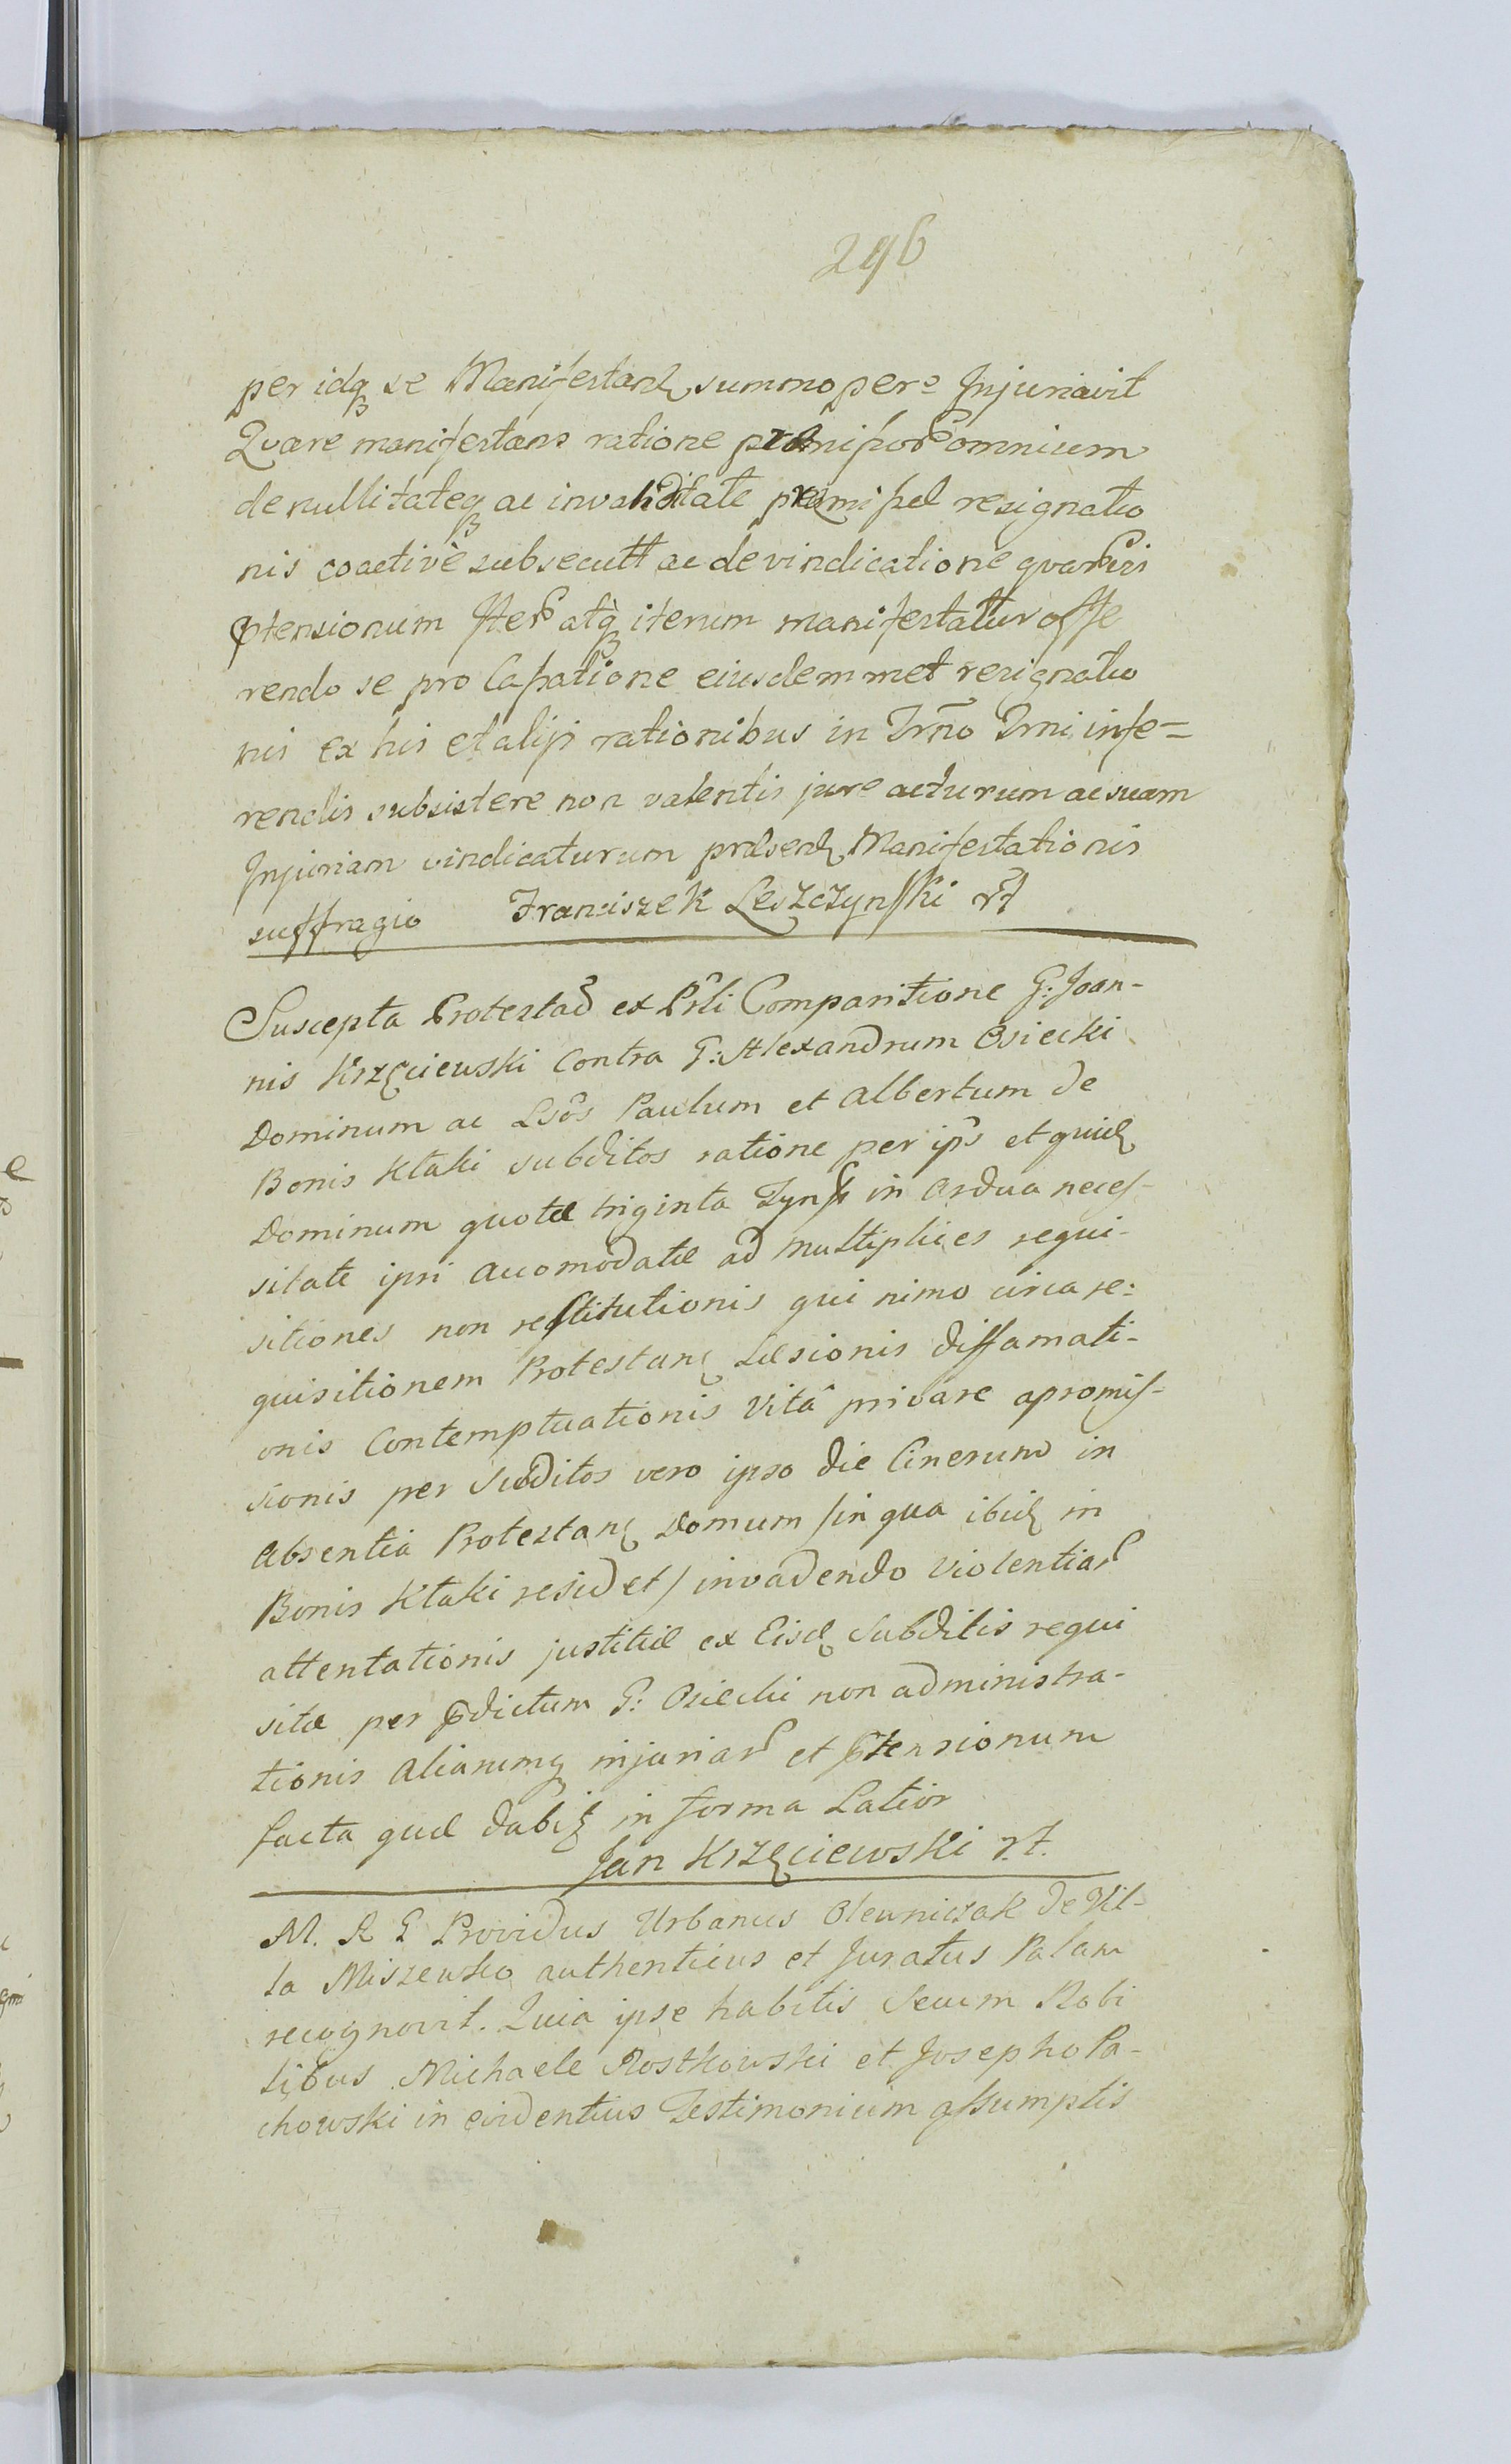 296
per idq se Manifestan summopere Injuriavit
Quare manifestans ratione præmissor omnium
de nullitateq ac invaliditate præmissæ resignatio
nis coactivè subsecutt ac de vindicatione quarvis
ptensionum Iter atq iterum manifestatur offe
rendo se pro Cassatione eiusdemmet resignatio
nis ex his et alijs rationibus in Trno Trni infe=
rendis subsistere non valentis jure acturum ac suam
Injuriam vindicaturum præsen Manifestationis
suffragio Franciszek Leszczynski
Suscepta Protestao ex Prli Comparitione G: Joan-
nis Krzęciewski Contra G: Alexandrum Osiecki
Dominum ac Lsos Paulum et Albertum de
Bonis Ktaki subditos ratione per ips et quid
Dominum quotæ triginta Tynf in ardua neces-
sitate ipsi accomodatæ ad multiplices requi-
sitiones non restitutionis qui nimo circa re:
quisitionem Protestan Læsionis diffamati-
onis Contemptuationis Vitâ privare apromis-
sionis per Subditos vero ipso die Cinerum in
absentia Protestan Domum /in qua ibid in
Bonis Ktaki residet/ invadendo violentiar
attentationis justitiæ ex Eisd Subditis requi
sitæ per pdictum G: Osiecki non administra-
tionis Aliarumq injuriar et ptensionum
facta quæ dabit in forma Latior
Jan Krzęciewski
M. R G Providus Urbanus Olewniczak de Vil-
la Miszewko authenticus et Juratus Palam
recognovit. Quia ipse habitis Secum Nobi
libus Michaele Rostkowski et Josepho Pa-
chowski in evidentius Testimonium assumptis